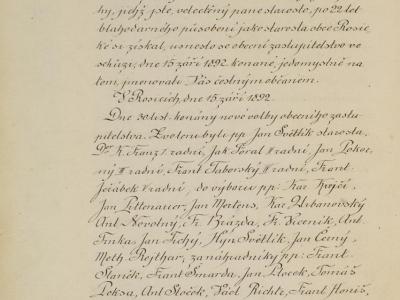 hy, jichž jste, velectěný pane starosto, po 22 let
blahodárného působení jako starosta obce Rosic-
ké si získal, usneslo se obecní zastupitelstvo ve
schůzi, dne 15 září 1892 konané, jednomyslně na
tom, jmenovati Vás čestným občanem.
V Rosicích, dne 15 září 1892.
Dne 30 list. konány nové volby obecního zastu-
pitelstva. Zvoleni byli pp. Jan Světlík starosta,
Dr. K. Franz I radní, Jak. Toral II radní, Jan Pokor-
ný III radní, Frant Táborský radní, Frant.
Jeřábek V radní, do výboru pp: Kar. Krejčí,
Jan Littenauer, Jan Mertens, Kar. Urbanovský
Ant. Novotný, Fr. Brázda, F. Viceník, Ant.
Trnka, Jan Tichý, Hyn. Světlík, Jan Černý,
Meth. Rejthar, za náhradníky pp: Frant.
Stančk, Frant. Smarda, Jan Plocek, Tomáš
Peksa, Ant. Stoček, Václ. Richte, Frant. Honiš,